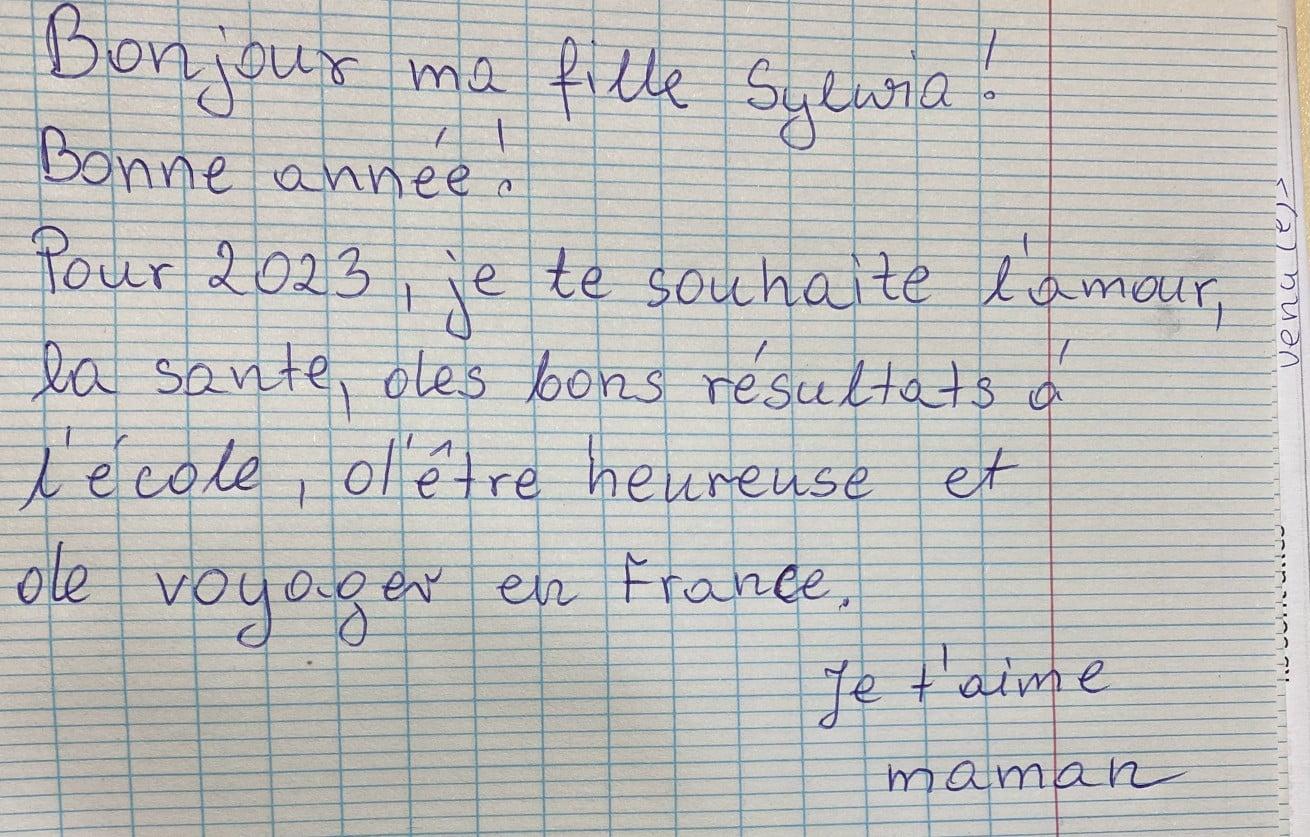 Bonjour ma fille Sylwia!
Bonne année!
Pour 2023, je te souhaite l'amour,
la sante, des bons résultats á
l'école, d'être heureuse et
de voyager en France.
Je t'aime
maman
venu(e)s